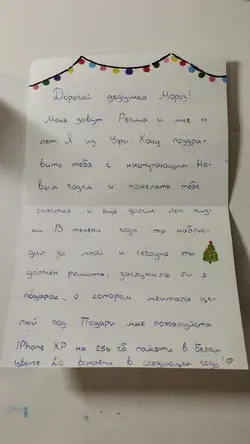 Дорогой дедушка Мороз!
Меня зовут Регина и мне 11
лет. Я из Уфы. Хочу поздра-
вить тебя с наступающим Но-
вым годом и пожелать тебе
счастья и ещё долгих лет жиз-
ни В течени года ты наблю-
дал за мной и сегодня ты
должен решить, заслужила ли я
подарок, о котором мечтала це-
лый год. Подари мне пожалуйста
IPhone XP на 256 гб памяти в белом
цвете До встречи в следующем году!